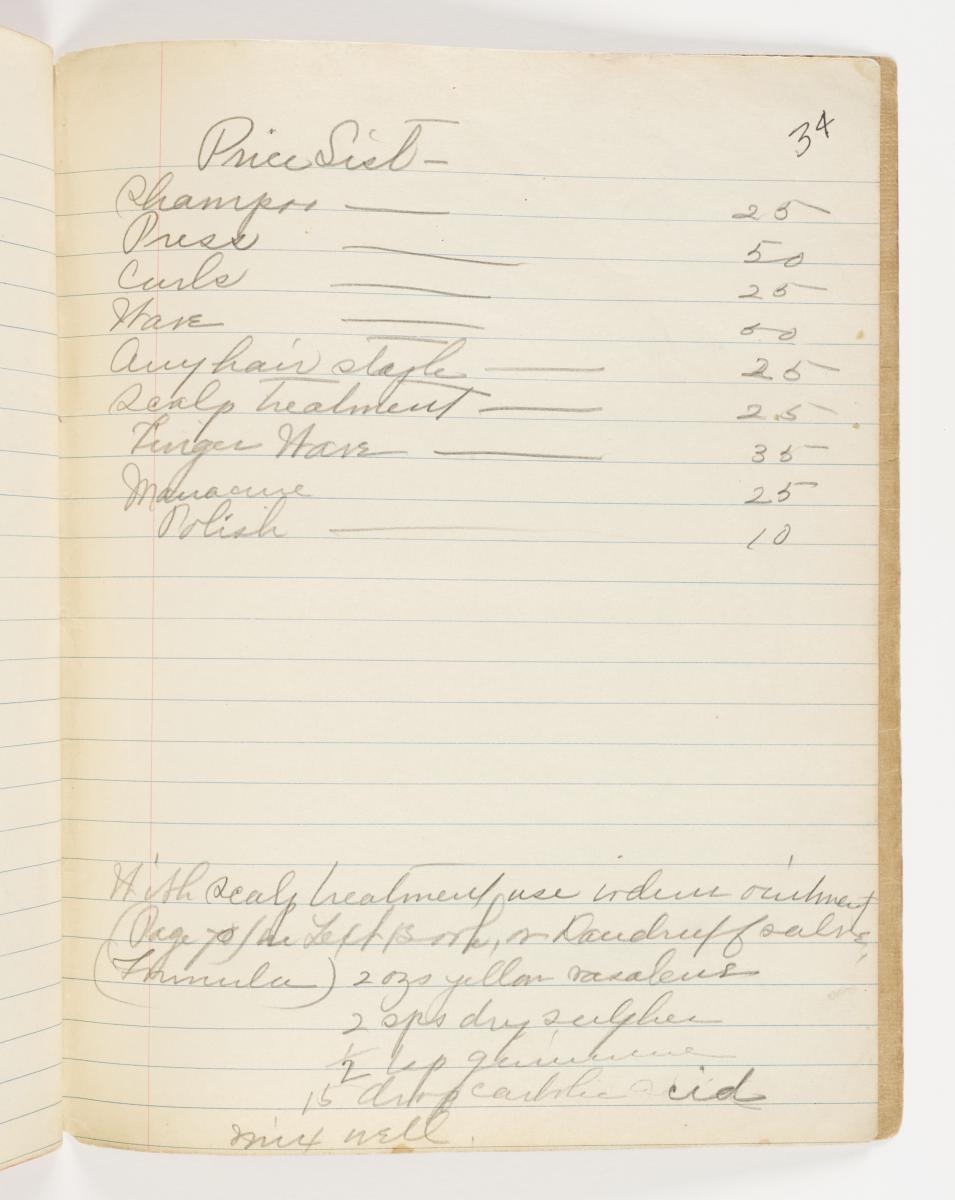 34
Price List –
Shampoo — 25
Press — 50
Curls — 25
Wave — 50
Any hair style — 25
Scalp treatment — 25
Finger Wave — 35
Manacure 25
Polish — 10
With scalp treatment use ointment
(Page in Text Book, or Dandruff salve,
Formula) 2 ozs yellow vasalene
2 sps dry sulpher
1/2 tsp quinine
15 drop carbolic acid
mix well.